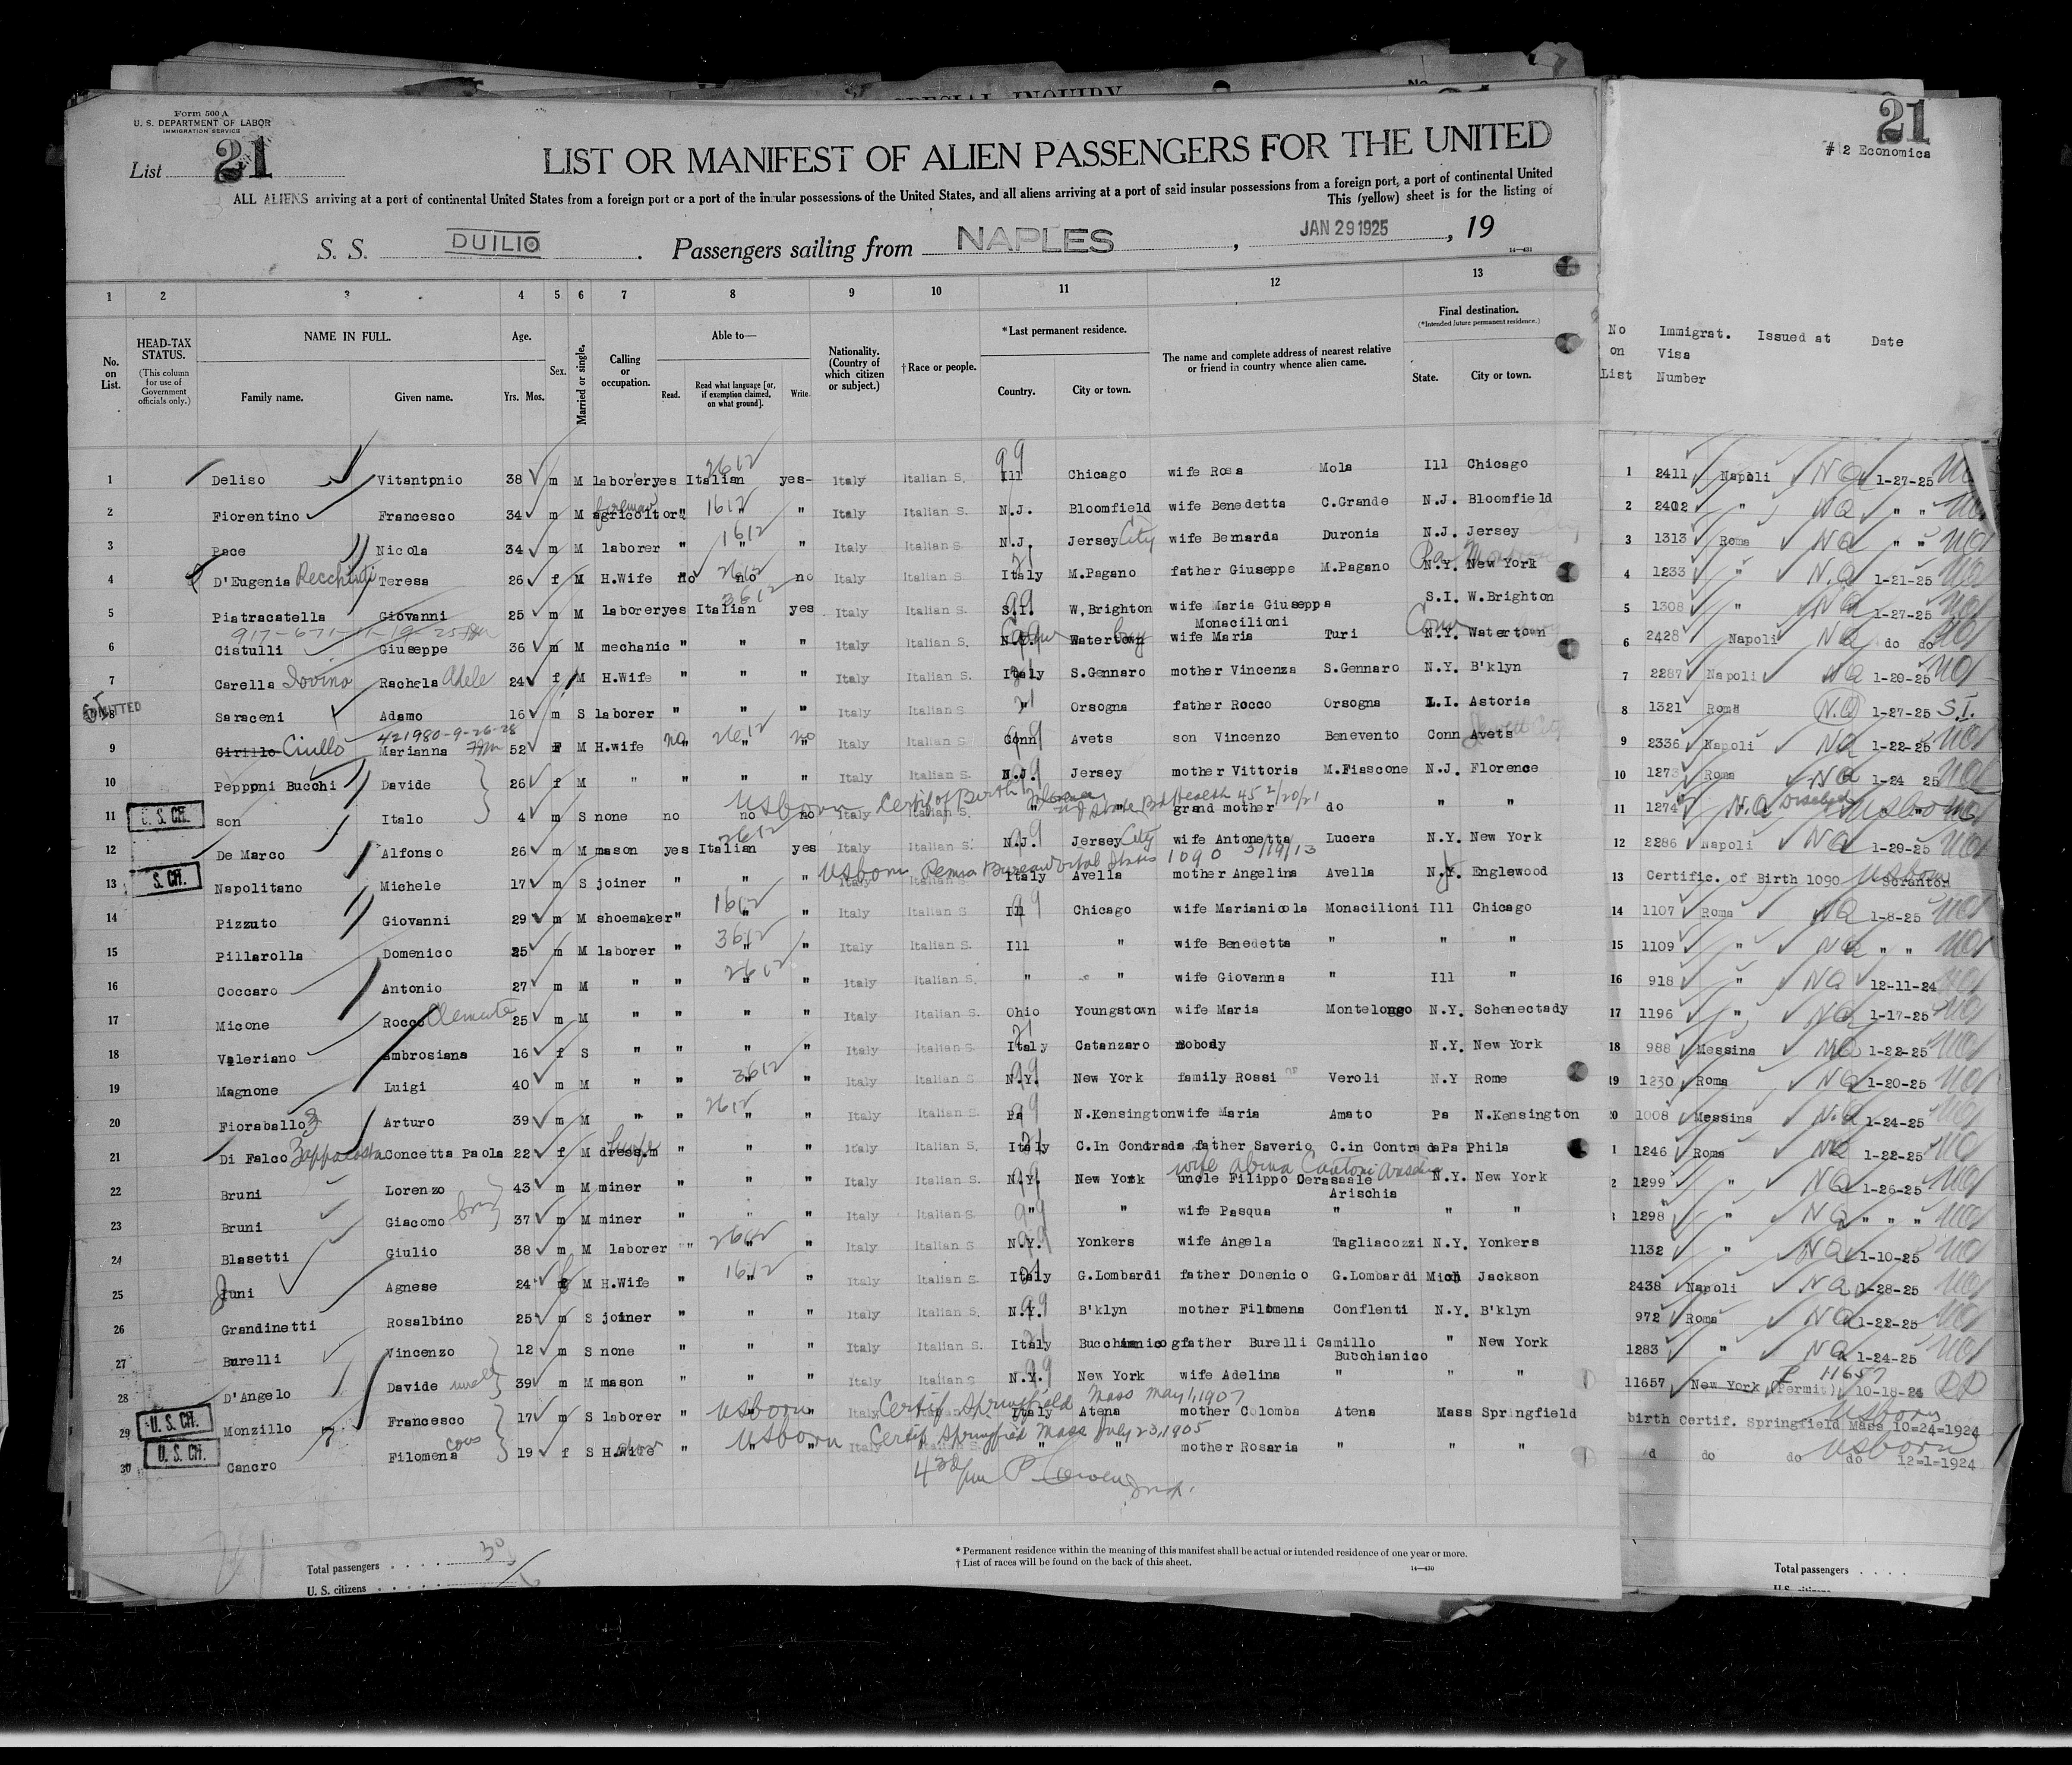 SPECIAL INQUIRY
Form 500 A
U. S. DEPARTMENT OF LABOR
IMMIGRATION SERVICE
List 21
LIST OR MANIFEST OF ALIEN PASSENGERS FOR THE UNITED
ALL ALIENS arriving at a port of continental United States from a foreign port or a port of the insular possessions of the United States, and all aliens arriving at a port of said insular possessions from a foreign port, a port of continental United
This (yellow) sheet is for the listing of
S. S. DUILIO . Passengers sailing from NAPLES , JAN 29 1925 , 19
14—431
21
# 2 Economica
1 2 3 4 5 6 7 8 9 10 11 12 13
No. on List.
HEAD-TAX STATUS.
(This column for use of Government officials only.)
NAME IN FULL.
Family name. Given name.
Age.
Yrs. Mos.
Sex.
Married or single.
Calling or occupation.
Able to—
Read. Read what language [or, if exemption claimed, on what ground]. Write.
Nationality. (Country of which citizen or subject.)
†Race or people.
*Last permanent residence.
Country. City or town.
The name and complete address of nearest relative or friend in country whence alien came.
Final destination.
(*Intended future permanent residence.)
State. City or town.
No on List Immigrat. Visa Number Issued at Date
1 Deliso Vitantonio 38 m M laborer yes Italian 2612 yes- Italy Italian S. Ill 99 Chicago wife Rosa Mola Ill Chicago 1 2411 Napoli NQ 1-27-25
2 Fiorentino Francesco 34 m M agricoltor " 1612 " Italy Italian S. N.J. Bloomfield wife Benedetta C.Grande N.J. Bloomfield 2 2402 " NQ " "
3 Pace Nicola 34 m M laborer " 1612 " " Italy Italian S. N.J. Jersey City wife Bernarda Duronia N.J. Jersey 3 1313 Roma NQ " "
4 D'Eugenia Recchiugi Teresa 26 f M H.Wife no 2612 no no Italy Italian S. Italy 21 M.Pagano father Giuseppe M.Pagano N.Y. New York 4 1233 " N.Q 1-21-25
5 Piatracatella Giovanni 25 m M laborer yes Italian 3612 yes Italy Italian S. S.I. W.Brighton wife Maria Giuseppa S.I. W.Brighton 5 1308 " NQ 1-27-25
Monacilioni
917-671-11-19-25
6 Cistulli Giuseppe 36 m M mechanic " " " Italy Italian S. N.Y. Watertown wife Maria Turi Conn N.Y. Watertown 6 2428 Napoli NQ do do
7 Carella Iovino Rachela Adele 24 f M H.Wife " " " Italy Italian S. Italy S.Gennaro mother Vincenza S.Gennaro N.Y. B'klyn 7 2287 Napoli NQ 1-20-25
ADMITTED
8 Saraceni Adamo 16 m S laborer " " " Italy Italian S. " 21 Orsogna father Rocco Orsogna L.I. Astoria 8 1321 Roma N.Q 1-27-25 S.I.
421980-9-26-28
9 Cirillo Ciullo Marianna 52 F M H.wife no " 2612 " no " Italy Italian S. Conn 99 Avets son Vincenzo Benevento Conn Avets 9 2336 Napoli NQ 1-22-25
10 Pepponi Bucchi Davide 26 f M " " " " Italy Italian S. N.J. Jersey mother Vittoria M.Fiascone N.J. Florence 10 1273 Roma NQ 1-24 25
USborn Certif of Birth State Bd Health 45 2/20/21
U. S. CIT.
11 son Italo 4 m S none no no no Italy Italian S. " " grand mother do " " 11 1274 N.Q USborn
12 De Marco Alfonso 26 m M mason yes Italian 2612 yes Italy Italian S. N.J. 99 Jersey City wife Antonetta Lucera N.Y. New York 12 2286 Napoli NQ 1-29-25
USborn Penna Bureau Vital Stats 1090 3/19/13
S. CIT.
13 Napolitano Michele 17 m S joiner " " " Italy Italian S. Italy Avella mother Angelina Avella N.Y. Englewood 13 Certific. of Birth 1090 Scranton USborn
14 Pizzuto Giovanni 29 m M shoemaker " 1612 " " Italy Italian S. Ill 99 Chicago wife Marianicola Monacilioni Ill Chicago 14 1107 Roma NQ 1-8-25
15 Pillarolla Domenico 25 m M laborer " 3612 " " Italy Italian S. Ill " wife Benedetta " " " 15 1109 " NQ " "
16 Coccaro Antonio 27 m M " " 2612 " " Italy Italian S. " " wife Giovanna " Ill " 16 918 " NQ 12-11-24
17 Micone Rocco Clemente 25 m M " " " " Italy Italian S. Ohio Youngstown wife Maria Montelongo N.Y. Schenectady 17 1196 " NQ 1-17-25
18 Valeriano Ambrosiana 16 f S " " " " Italy Italian S. Italy 21 Catanzaro nobody N.Y. New York 18 988 Messina NQ 1-22-25
19 Magnone Luigi 40 m M " " 3612 " " Italy Italian S. N.Y. 99 New York family Rossi Veroli N.Y Rome 19 1230 Roma NQ 1-20-25
20 Fioraballo Arturo 39 m M " " 2612 " " Italy Italian S. Pa 99 N.Kensington wife Maria Amato Pa N.Kensington 20 1008 Messina N.Q 1-24-25
21 Di Falco Zappacosta Concetta Paola 22 f M dressm " " " Italy Italian S. Italy 21 C.In Contrada father Saverio C.in Contrada Pa Phila 1 1246 Roma NQ 1-22-25
wife Albina Cantoni
22 Bruni Lorenzo 43 m M miner " " " Italy Italian S. N.Y. 99 New York uncle Filippo Cerasaale N.Y. New York 2 1299 " NQ 1-26-25
Arischia
23 Bruni Giacomo 37 m M miner " " " Italy Italian S. " 99 " wife Pasqua " " " 1298 " NQ " " "
24 Blasetti Giulio 38 m M laborer " 2612 " " Italy Italian S N.Y. 99 Yonkers wife Angela Tagliacozzi N.Y. Yonkers 1132 " NQ 1-10-25
25 Juni Agnese 24 f M H.Wife " 1612 " " Italy Italian S. Italy 21 G.Lombardi father Domenico G.Lombardi Mich Jackson 2438 Napoli NQ 1-28-25
26 Grandinetti Rosalbino 25 m S joiner " " " Italy Italian S. N.Y. 99 B'klyn mother Filomena Conflenti N.Y. B'klyn 972 Roma NQ 1-22-25
27 Burelli Vincenzo 12 m S none " " " Italy Italian S. Italy 21 Bucchianico gfather Burelli Camillo " New York 1283 " NQ 1-24-25
Bucchianico
28 D'Angelo Davide uncle 39 m M mason " " " Italy Italian S N.Y. 99 New York wife Adelina " " " 11657 New York (Permit) 10-18-24 P 11657
USborn Certif Springfield Mass May 1, 1907
U. S. CIT.
29 Monzillo Francesco 17 m S laborer " " " Italy Italy Atena mother Colomba Atena Mass Springfield birth Certif. Springfield Mass 10=24=1924 USborn
USborn Certif Springfield Mass July 23, 1905
U. S. CIT.
30 Cancro Filomena cous 19 f S H.Wife " " Italy " " mother Rosaria " " " d do do do 12=1=1924 USborn
Total passengers . . . . . 30
U. S. citizens . . . . . .
* Permanent residence within the meaning of this manifest shall be actual or intended residence of one year or more.
† List of races will be found on the back of this sheet.
14—430
Total passengers . . . .